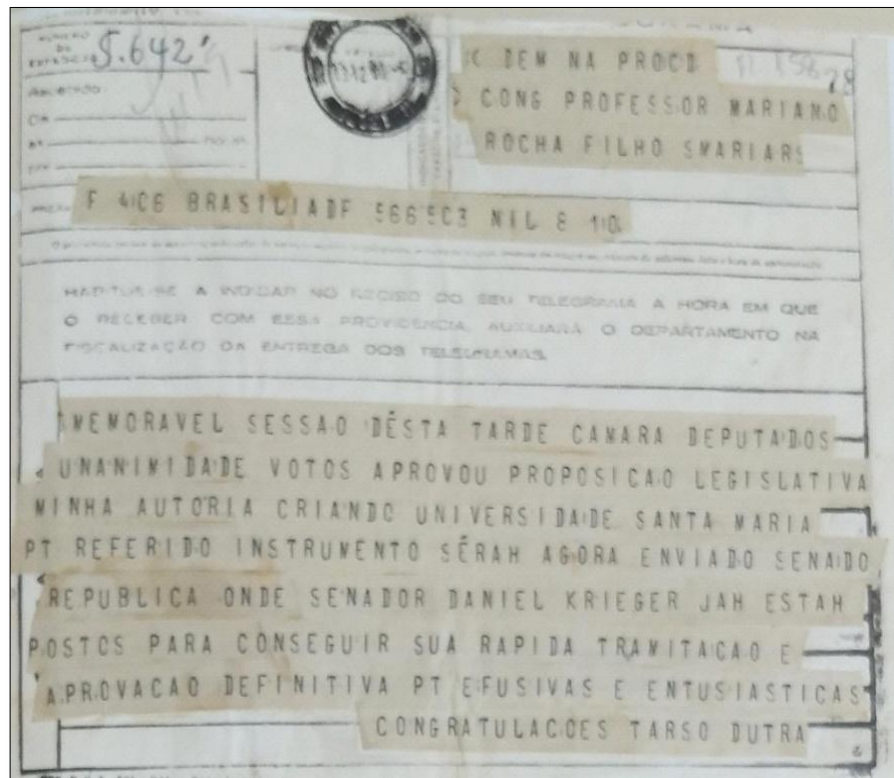 NUMERO
DE
5.642
C DEM NA PROCD
CONG PROFESSOR MARIANO
ROCHA FILHO SMARIARS
F 4106 BRASILIADF 566503 NIL 8 110
HABITUE-SE A INDICAR NO RECIBO DO SEU TELEGRAMA A HORA EM QUE
O RECEBER. COM ESSA PROVIDENCIA, AUXILIARÁ O DEPARTAMENTO NA
FISCALIZAÇÃO DA ENTREGA DOS TELEGRAMAS.
MEMORAVEL SESSAO DÊSTA TARDE CAMARA DEPUTADOS
UNANIMIDADE VOTOS APROVOU PROPOSICAO LEGISLATIVA
MINHA AUTORIA CRIANDO UNIVERSIDADE SANTA MARIA
PT REFERIDO INSTRUMENTO SÊRAH AGORA ENVIADO SENADO
REPUBLICA ONDE SENADOR DANIEL KRIEGER JAH ESTAH
POSTOS PARA CONSEGUIR SUA RAPIDA TRAMITACAO E
APROVACAO DEFINITIVA PT EFUSIVAS E ENTUSIASTICAS
CONGRATULACOES TARSO DUTRA